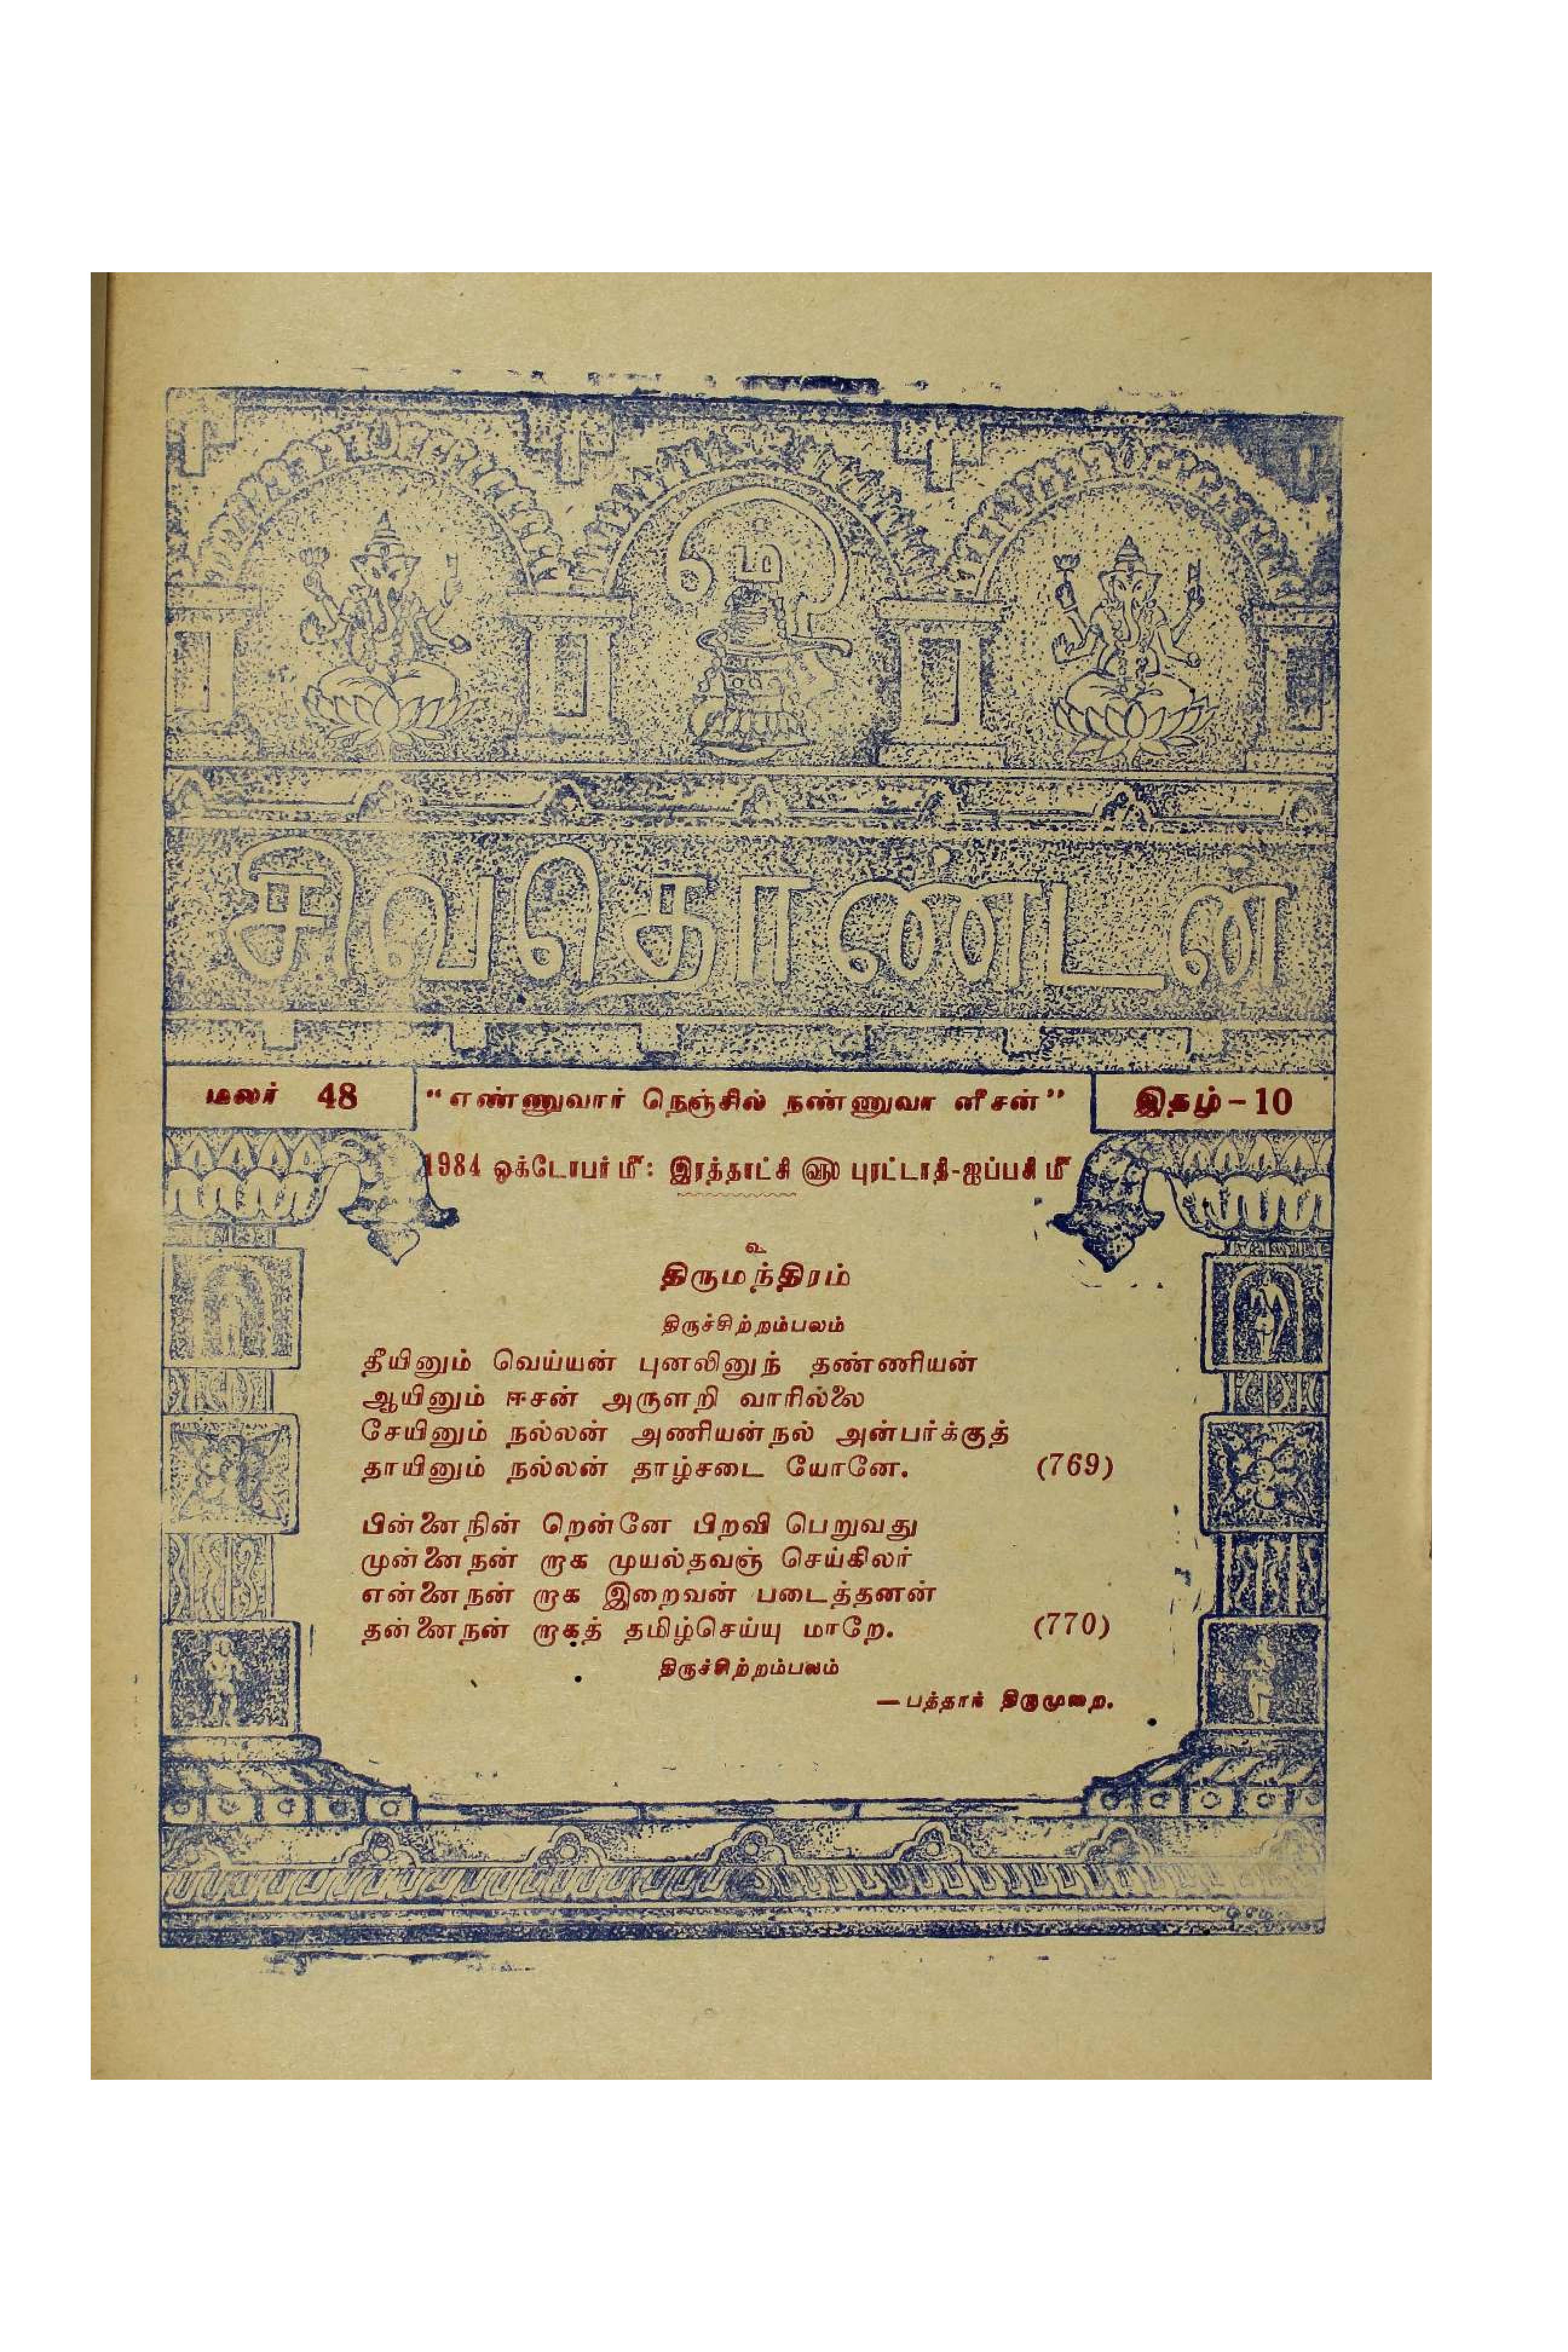 ஓம்
சிவதொண்டன்
மலர் 48 “எண்ணுவார் நெஞ்சில் நண்ணுவா னீசன்” இதழ் – 10
1984 ஒக்டோபர் ௴: இரத்தாட்சி ௵ புரட்டாதி-ஐப்பசி ௴
உ
திருமந்திரம்
திருச்சிற்றம்பலம்
தீயினும் வெய்யன் புனலினுந் தண்ணியன்
ஆயினும் ஈசன் அருளறி வாரில்லை
சேயினும் நல்லன் அணியன்நல் அன்பர்க்குத்
தாயினும் நல்லன் தாழ்சடை யோனே. (769)
பின்னைநின் றென்னே பிறவி பெறுவது
முன்னைநன் றாக முயல்தவஞ் செய்கிலர்
என்னைநன் றாக இறைவன் படைத்தனன்
தன்னைநன் றாகத் தமிழ்செய்யு மாறே. (770)
திருச்சிற்றம்பலம்
— பத்தாந் திருமுறை.